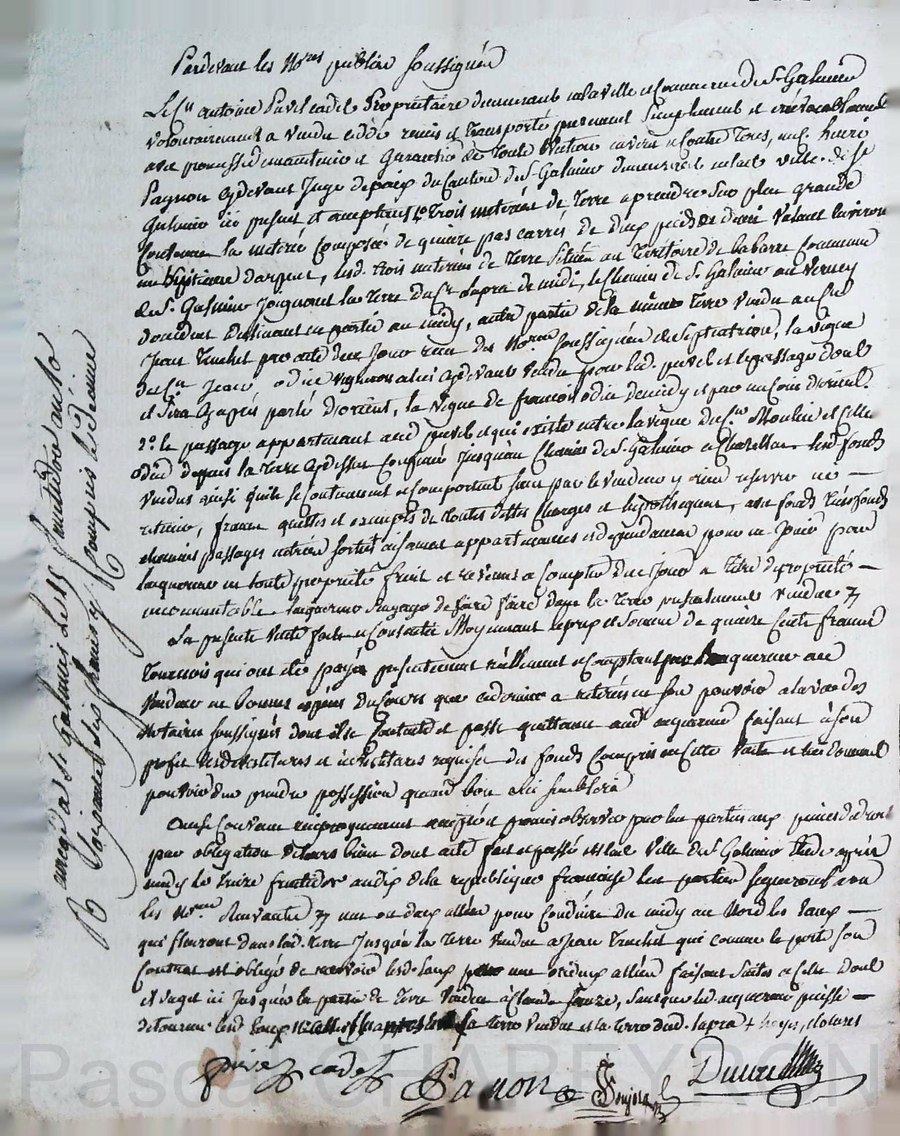 Pardevant les No.res publics soussignés
Le C.en antoine Privel cadet Propriétaire demeurant en la ville et commune de St Galmier
volontairement a vendu cédé remis et transporté purement simplement et irrévocablement
avec promesse de maintenir et garantir de toute éviction envers et contre tous, au C.
Pagnon cydevant Juge de paix du Canton de St Galmier demeurant en lad. ville de St
Galmier ici présent et acceptant trois meterées de terre a prendre sur plus grande
Contenue la meterée Composée de quinze pas carrés de deux pieds et demi valant environ
d'arpent, lesd. trois meterées de terre située au Territoire de la barre Commune
de St Galmier Joignant la terre du C.en Lapra de midi, le Chemin de St Galmier au
d'occident en partie au midy, autre partie de la même terre vendue au C.en
Jean Truchet par acte de ce Jour reçu des No.res soussignés de Septentrion, la vigne
du C.en Jean odin cydevant vendue par led. privel et le passage dont
il sera cy après parlé d'orient, la vigne de françois odin de midy et par un coin d'orient.
2.o le passage appartenant aud. privel et qui existe entre la vigne du C.en Moulin et celle
odin depuis la terre cydessus Confinée Jusqu'au Chemin de St Galmier a Chazelles lesd. fonds
vendus ainsi qu'ils se Contiennent et Comportent sans par le vendeur y rien reserver ni
retenir, francs quittes et exempts de toutes dettes Charges et hypothèques, avec fonds tréfonds
chemins passages entrées sorties aisances appartenances et dependances pour en Jouir par
l'acquereur en toute propriété fruits et revenus a Compter de ce Jour a titre de propriété
incommutable
La presente vente faite et Consentie Moyennant le prix et somme de quinze Cents francs
Tournois qui ont été payés presentement réellement et comptant par l'acquereur au
vendeur en bonnes espèces du Cours que ce dernier a retirés en son pouvoir a la vue des
notaires soussignés dont il se Contente et passe quittance aud. acquereur faisant à son
profit lesdevestitures et investitures requises des fonds Compris en cette vente et lui donnant
pouvoir d'en prendre possession quand bon lui semblera
Ainsi Convenu reciproquement accepté et promis observer par les parties aux peines de droit
par obligation de leurs biens dont acte fait et passé en lad. Ville de St Galmier l'étude après
midy le treize fructidor an dix de la republique française les parties signeront avec
les No.res un ou deux allées pour Conduire du midy au Nord les eaux
qui fleuront dans lad. terre Jusqu'à la terre vendue a Jean Truchet qui comme le porte son
Contrat est obligé de recevoir lesd. eaux par une ou deux allées faisant suites a celle dont
il s'agit ici Jusqu'à la partie de terre vendue à Claude faure, sans que led. acquereur puisse
detourner lesd. eaux la terre vendue et la terre dud. Lapra
privel cadet Pagnon
enreg.é a St Galmier le 15 fructidor an 10
R. Soixante six francs Compris le décime
Pascal CHAPEYRON